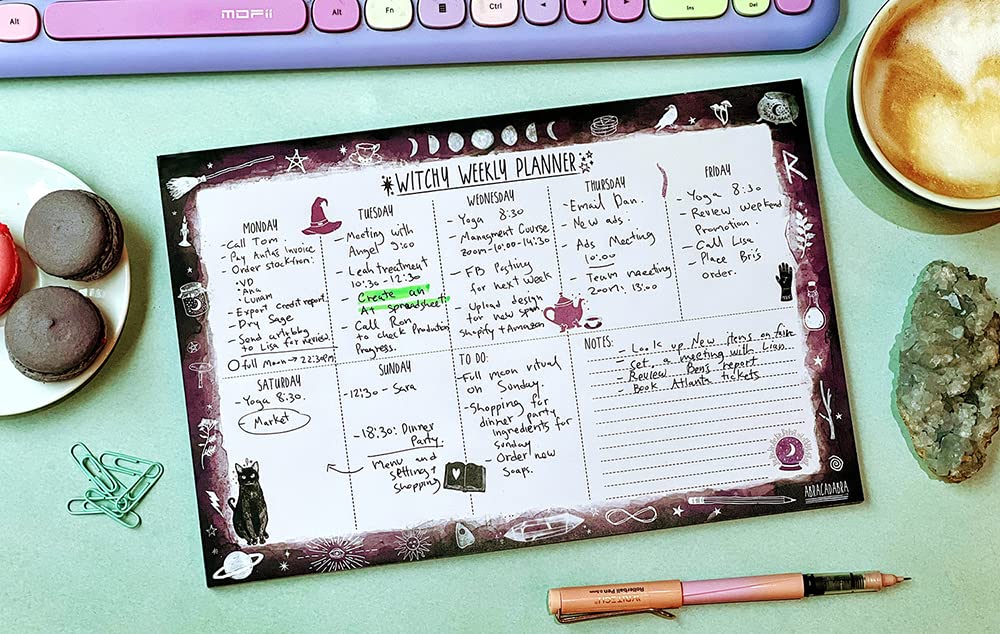 Alt
MDFii
Alt
Fn
Ctrl
Ins
Del
WITCHY WEEKLY PLANNER
MONDAY
- Call Tom
- Pay Anitas invoice
- Order stock from:
• VD
• Ana
- Export Credit report
- Dry Sage
- Send artbabby
to Lisa for review
Full Moon → 22:30pm
TUESDAY
- Meeting with
Angel 9:00
- Leah treatment
10:30 - 12:30
- Create an
A+ spreadsheet
- Call Ron
to check Production
Progress.
WEDNESDAY
- Yoga 8:30
- Managment Course
zoom - 10:00 - 14:30
- FB Posting
for next week
- Upload design
for new spoon
Shopify + Amazon
THURSDAY
- Email Dan.
- New ads.
- Ads Meeting
10:00
- Team meeting
zoom: 13:00
FRIDAY
- Yoga 8:30
- Review weekend
Promotion.
- Call Lisa
- Place Bri's
order.
SATURDAY
- Yoga 8:30.
- Market
SUNDAY
- 12:30 - Sara
- 18:30: Dinner
Party.
Menu and
setting +
shopping
TO DO:
- Full moon ritual
on Sunday.
- Shopping for
dinner party
ingredients for
sunday
- Order new
soaps.
NOTES:
- Look up New items on faire
- Set a meeting with Lian.
- Review Ben's report
- Book Atlanta tickets
ABRACADABRA
WRITECH
Rollerball Pen 0.5mm